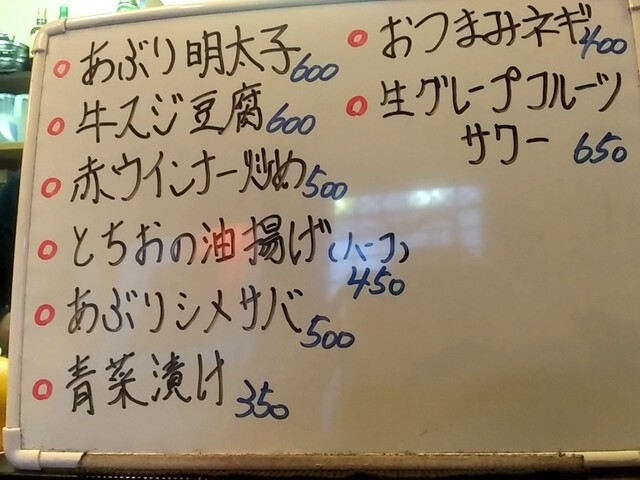 あぶり明太子 600
牛スジ豆腐 600
赤ウインナー炒め 500
とちおの油揚げ(ハーフ) 450
あぶりシメサバ 500
青菜漬け 350
おつまみネギ 400
生グレープフルーツ
サワー 650